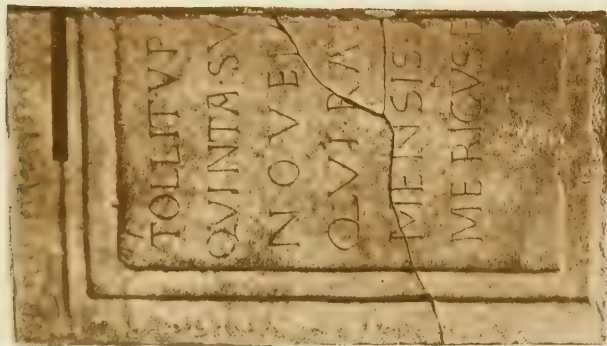 TOLLITVP
QVINTA SV
NOVEM
QVI RA
MENSIS
MERICVS